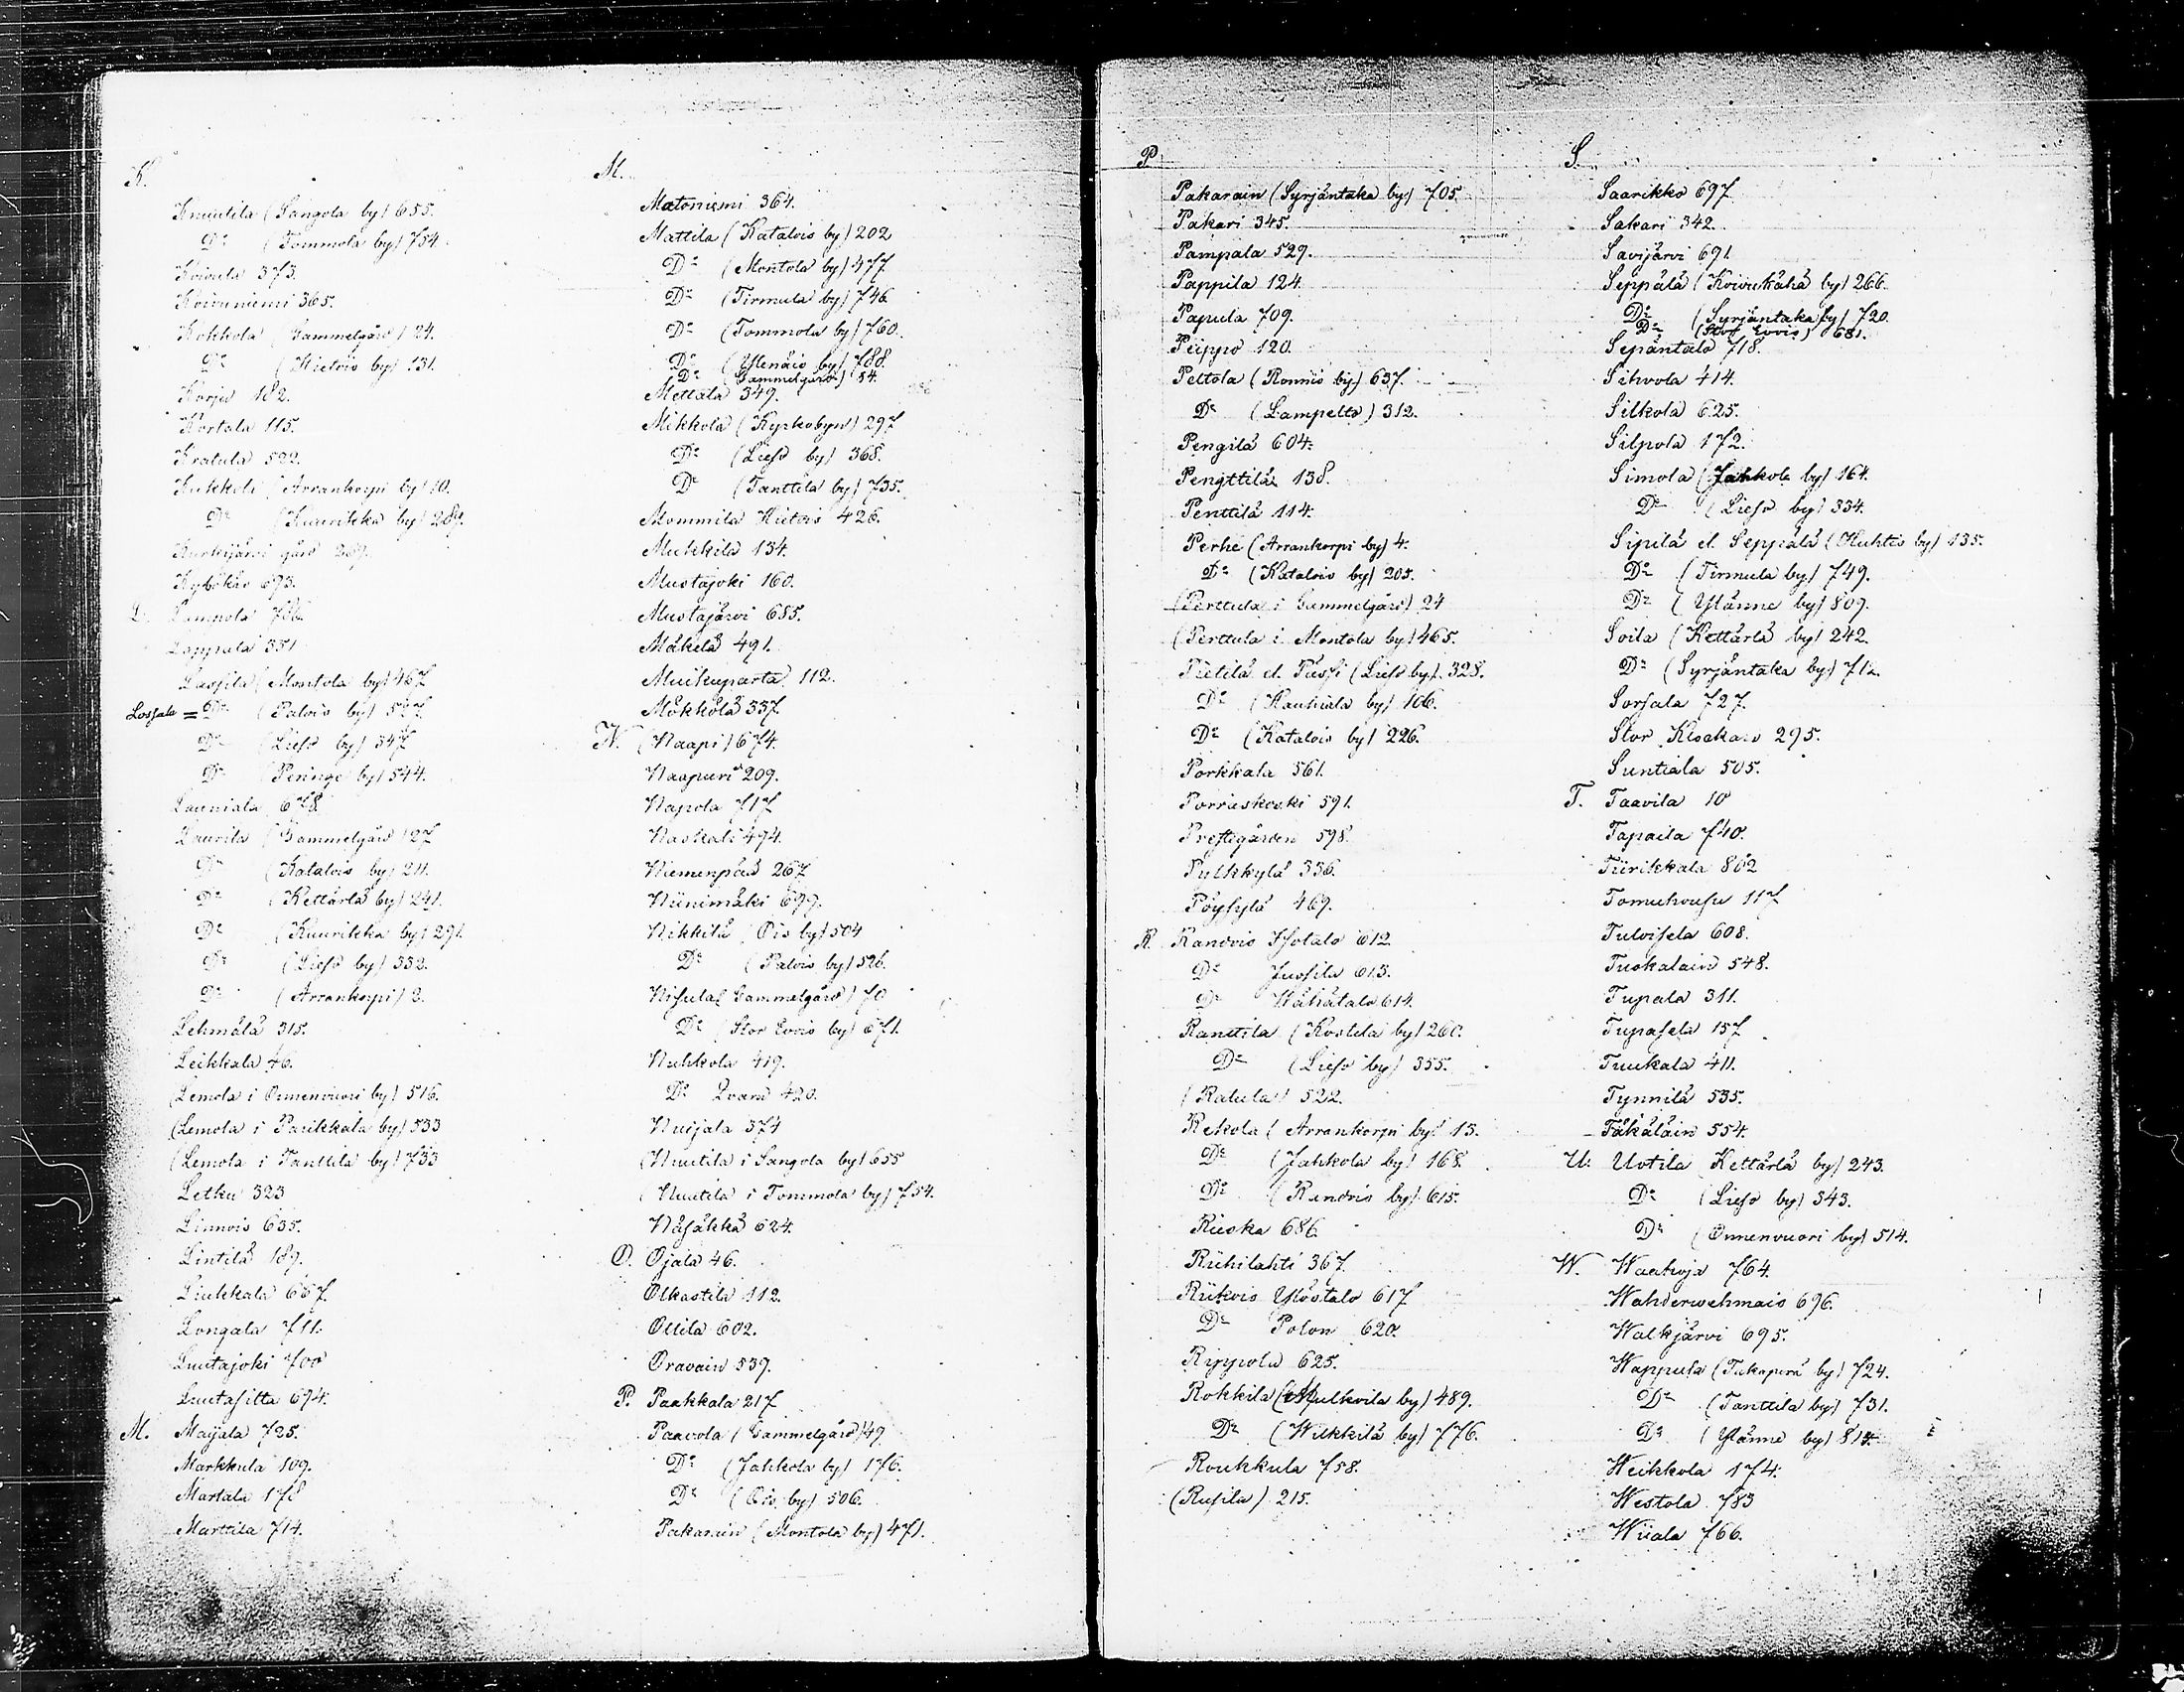 K.
Knuutila (Sangola by) 655.
Do (Tommola by) 754.
Koivula 373.
Koivuniemi 365.
Kokkola (Gammelgård) 24.
Do (Hietois by) 131.
Korju 182.
Kortala 115.
Kratula 522.
Kukkola (Arrankorpi by) 10.
Do (Kuurikka by) 289.
Kurkijärvi gård 269.
Kybökäs 693.
L. Lampola 786.
Lappala 351
Lassila (Montola by) 467
Lossala = Do (Palois by) 527.
Do (Lieso by) 347
Do (Peninge by) 544.
Launiala 678
Laurila (Gammelgård) 27
Do (Katalois by) 211.
Do (Kettärlä by) 241.
Do (Kuurikka by) 291.
Do (Lieso by) 332.
Do (Arrankorpi) 2.
Lehmälä 315.
Leikkala 46.
(Lemola i Onnenvuori by) 516.
(Lemola i Parikkala by) 533
(Lemola i Tanttila by) 733
Letku 323
Linnois 635.
Lintilä 189.
Liukkala 667.
Longala 711.
Luutajoki 700
Luutasilta 694.
M. Maijala 725.
Markkula 109.
Martala 178
Marttila 714.
M.
Matoniemi 364.
Mattila (Katalois by) 202
Do (Montola by) 477
Do (Tirmula by) 746
Do (Tommola by) 760.
Do (Ylenäis by) 788.
Do Gammelgård) 54.
Mettälä 349.
Mikkola (Kyrkobyn) 297
Do (Lieso by) 368.
Do (Tanttila by) 735.
Mommila Hietois 426.
Mukkila 134.
Mustajoki 160.
Mustajärvi 685.
Mäkelä 491.
Muikuparta 112.
Mökkölä 337.
N. (Naapi) 674.
Naapuri 209.
Napola 717
Naskali 494.
Niemenpää 267
Niinimäki 699.
Nikkilä (Ois by) 504
Do (Palois by) 526.
Nisula (Gammelgård) 70
Do (Stor Evois by) 671.
Nuhkola 419.
Do Qvarn 420.
Nuijala 374
(Nuutila i Sangola by) 655
(Nuutila i Tommola by) 754.
Näsäkkä 624.
O. Ojala 46.
Olkastila 112.
Ollila 602.
Oravain 539.
P. Paakkala 217
Paavola (Gammelgård) 49
Do (Jahkola by) 176.
Do (Ois by) 506.
Pakarain (Montola by) 471.
P.
Pakarain (Syrjäntaka by) 705.
Pakari 345.
Pampala 529.
Pappila 124.
Papula 709.
Peippo 120.
Peltola (Ronnis by) 637.
Do (Lampelto) 312.
Pengilä 604.
Pengttilä 138.
Penttilä 114.
Perhe (Arrankorpi by) 4.
Do (Katalois by) 205.
(Perttula i Gammelgård) 24
(Perttula i Montola by) 465.
Pietilä el. Piessi (Lieso by) 328.
Do (Kauhiala by) 106.
Do (Katalois by) 226.
Porkkala 561.
Porraskoski 591.
Prestegården 598.
Pulkkylä 336.
Pöysylä 469.
R. Randois Isotalo 612.
Do Jussila 613.
Do Wähätalo 614.
Ranttila (Kostila by) 260.
Do (Lieso by) 355.
(Ratula) 522.
Rekola (Arrankorpi by) 13.
Do (Jahkola by) 168.
Do (Randois by) 615.
Rieska 686.
Riihilahti 367.
Riikois Ylöstalo 617
Do Polon 620.
Rippola 625.
Rokkila (Mulkoila by) 489.
Do (Wilkkilä by) 776.
Roukkula 758.
(Rusila) 215.
S.
Saarikko 697
Sakari 342.
Savijärvi 691.
Seppälä (Koivukähä by) 266.
Do (Syrjäntaka by) 720.
Do (Stor Evois) 681.
Sepäntalo 718.
Sihvola 414.
Silkola 625.
Silpola 172.
Simola (Jahkola by) 164.
Do (Lieso by) 334.
Sipilä el. Seppälä (Huhtis by) 135.
Do (Tirmula by) 749.
Do (Ylänne by) 809.
Soila (Kettärlä by) 242.
Do (Syrjäntaka by) 712.
Sorsala 727.
Stor Klockars 295.
Suntiala 505.
T. Taavila 10
Tapaila 740.
Tiirikkala 802
Tomuhousu 117
Tuloisela 608.
Tuokalain 548.
Tupala 311.
Tupasela 157
Tuukala 411.
Tynnilä 535.
Täkäläin 554.
U. Uotila Kettärlä by) 243.
Do (Lieso by) 343.
Do (Onnenvuori by) 514.
W. Waahoja 764.
Wahderwehmais 696.
Walkjärvi 695.
Wappula (Takaperä by) 724.
Do (Tanttila by) 731.
Do (Ylänne by) 814.
Weikkola 174.
Westola 783
Wiiala 766.